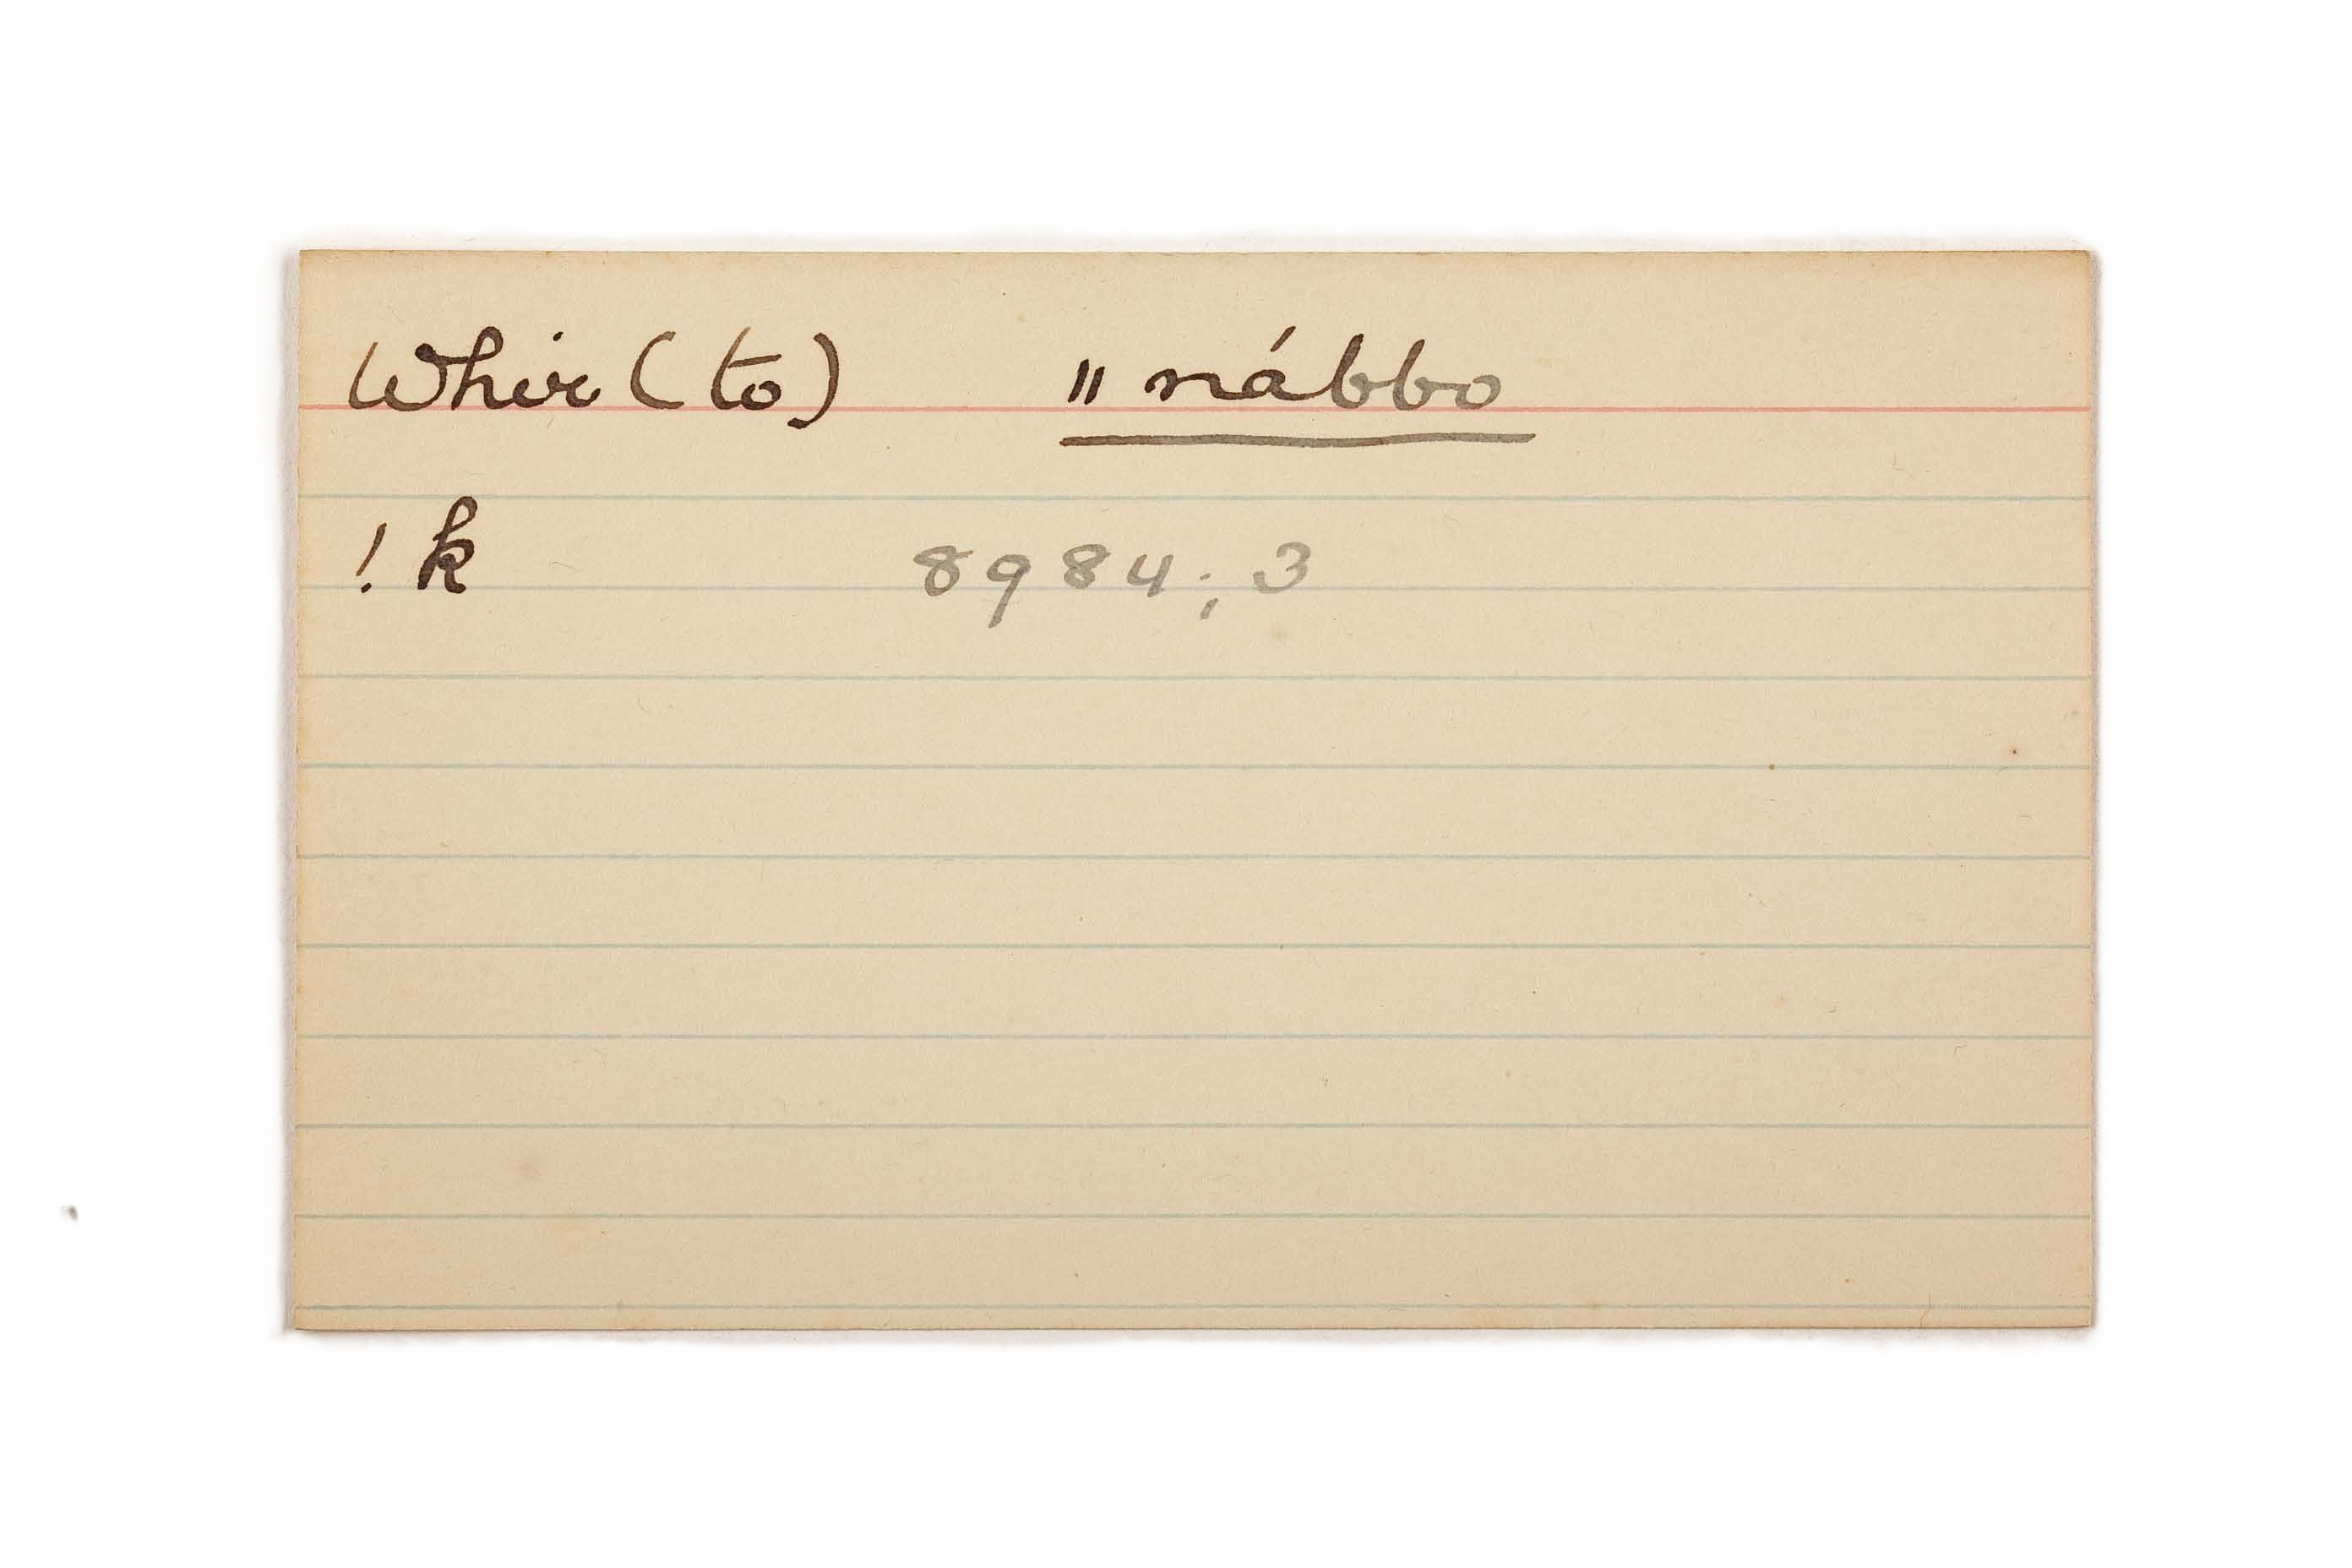 Whir (to) ǁnábbo
!k 8984; 3